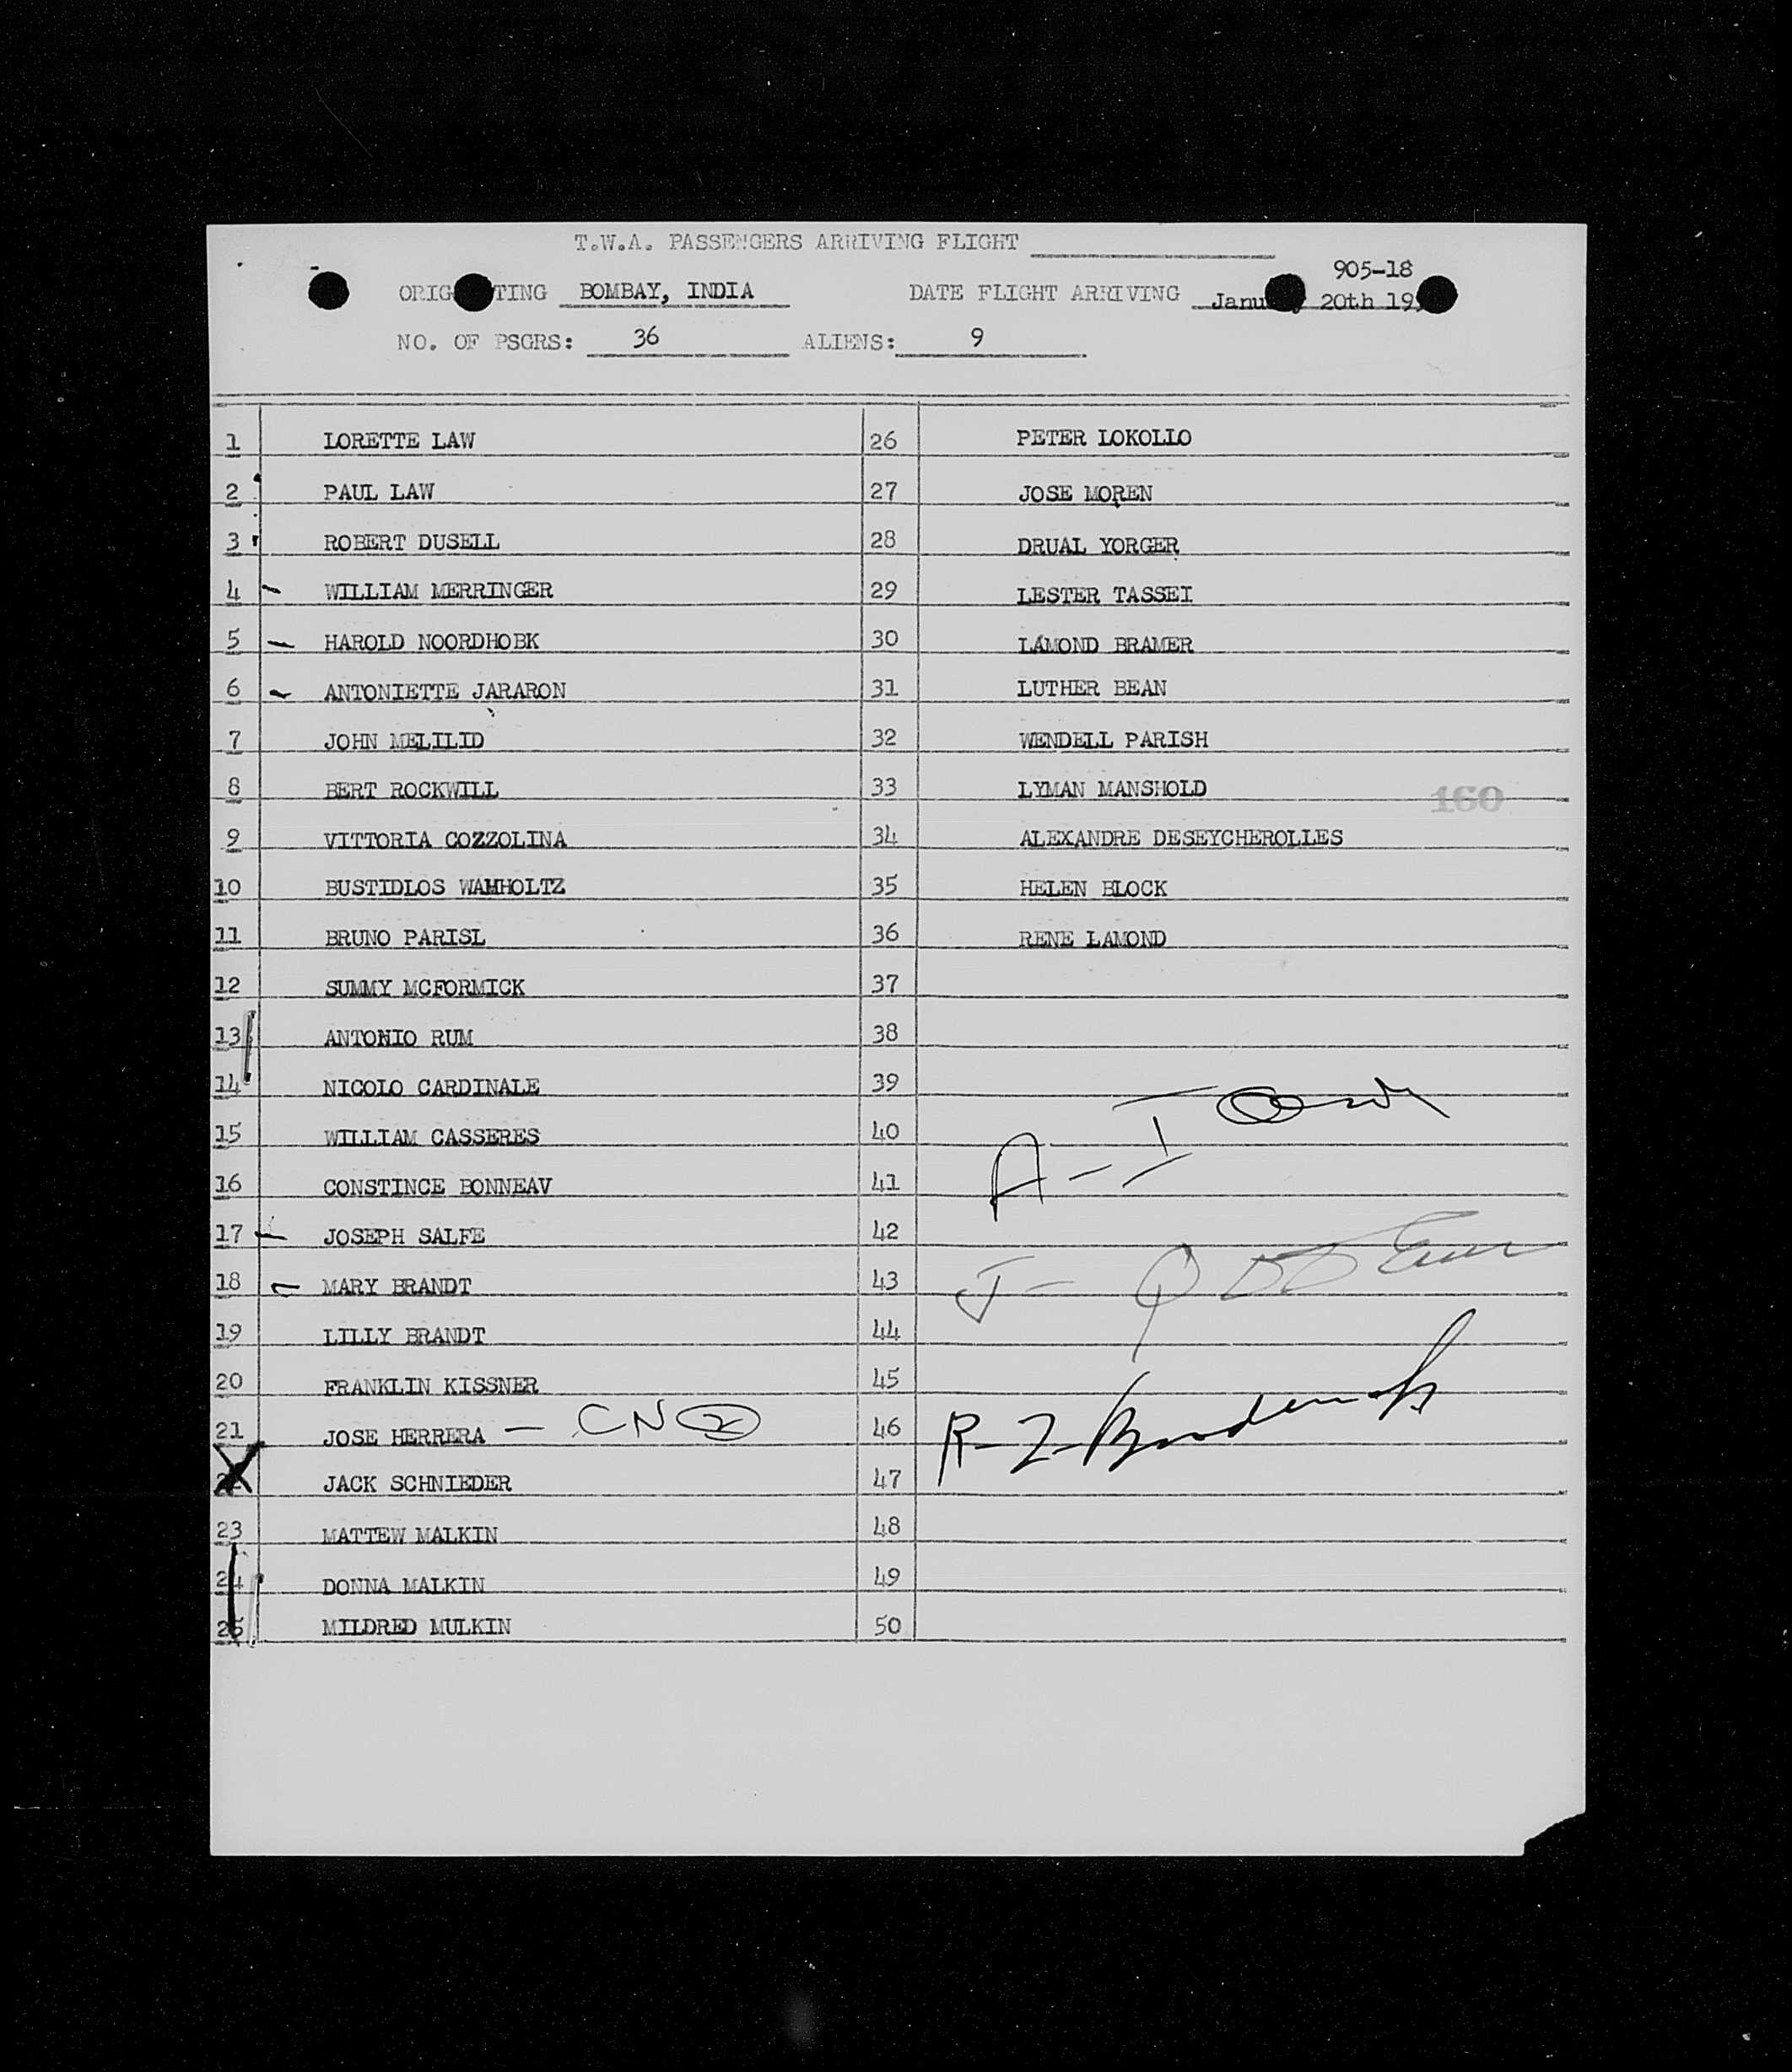 T.W.A. PASSENGERS ARRIVING FLIGHT
905-18
ORIG TING BOMBAY, INDIA DATE FLIGHT ARRIVING Janu 20th 19
NO. OF PSGRS: 36 ALIENS: 9
1 LORETTE LAW 26 PETER LOKOLLO
2 PAUL LAW 27 JOSE MOREN
3 ROBERT DUSELL 28 DRUAL YORGER
4 WILLIAM MERRINGER 29 LESTER TASSEI
5 HAROLD NOORDHOBK 30 LAMOND BRAMER
6 ANTONIETTE JARARON 31 LUTHER BEAN
7 JOHN MELILID 32 WENDELL PARISH
8 BERT ROCKWILL 33 LYMAN MANSHOLD
160
9 VITTORIA COZZOLINA 34 ALEXANDRE DESEYCHEROLLES
10 BUSTIDLOS WAMHOLTZ 35 HELEN BLOCK
11 BRUNO PARISL 36 RENE LAMOND
12 SUMMY MCFORMICK 37
13 ANTONIO RUM 38
14 NICOLO CARDINALE 39
15 WILLIAM CASSERES 40
16 CONSTINCE BONNEAV 41 A - I
17 JOSEPH SALFE 42
18 MARY BRANDT 43 J - Q
19 LILLY BRANDT 44
20 FRANKLIN KISSNER 45
21 JOSE HERRERA - CN 2 46 R-Z-
22 JACK SCHNIEDER 47
23 MATTEW MALKIN 48
24 DONNA MALKIN 49
25 MILDRED MULKIN 50